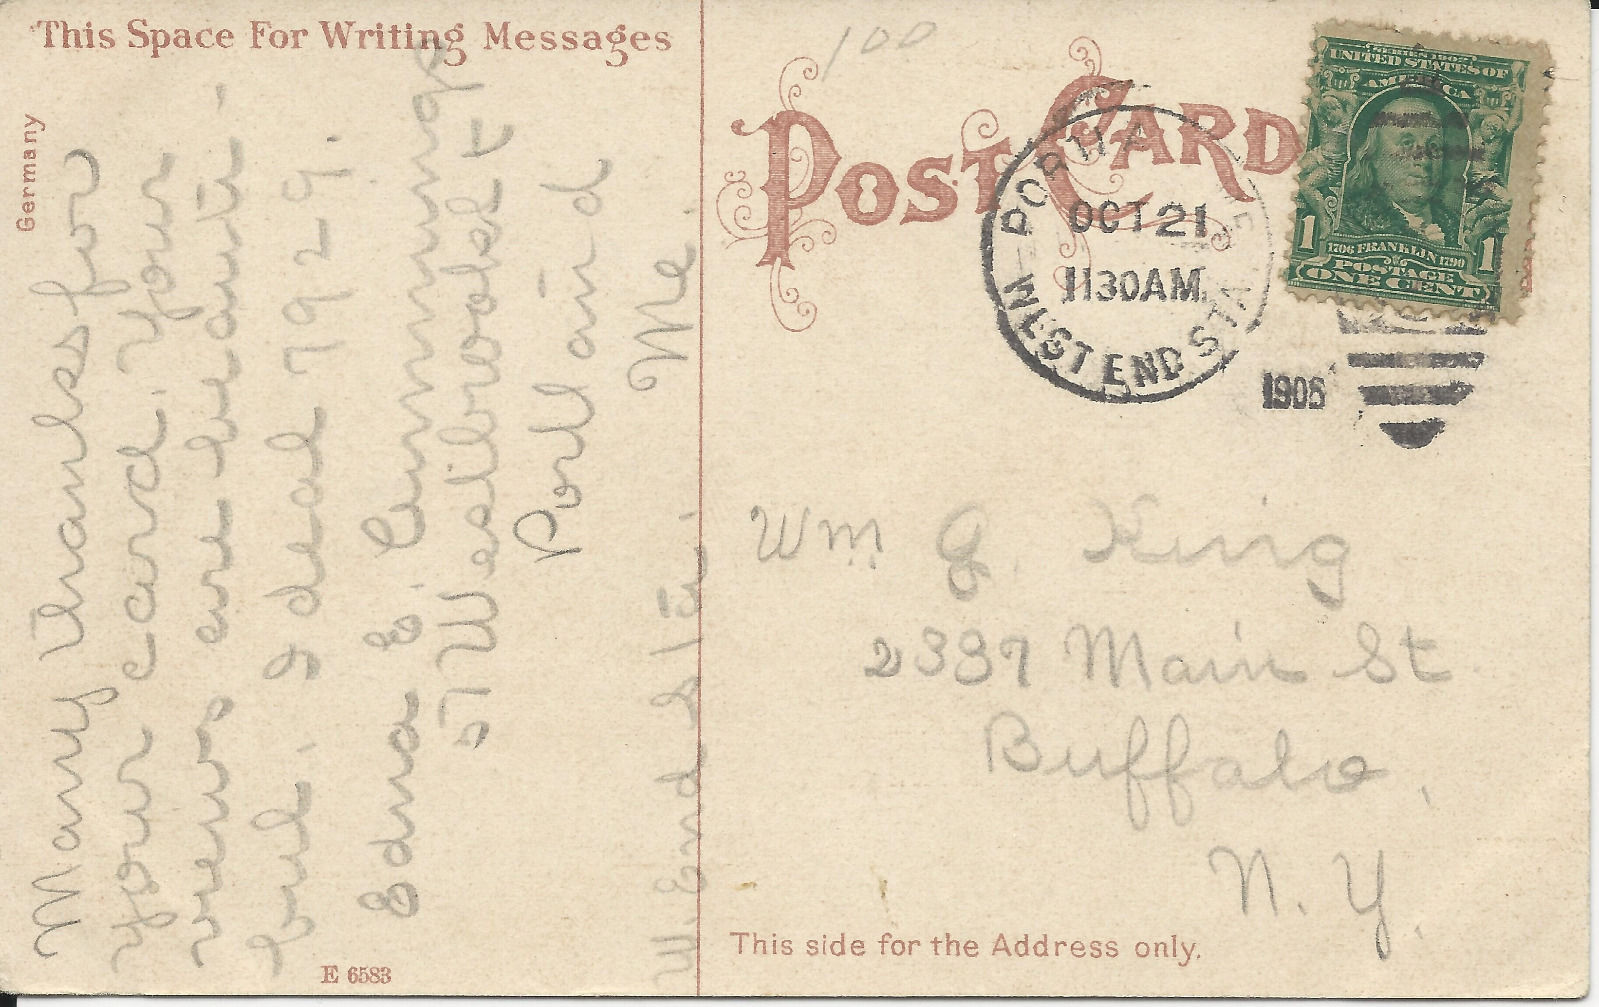 This Space For Writing Messages
Germany
Many thanks for
your card. Your
views are beauti-
ful. I deal 7929.
Edna E. Cummings
Westbrook St
Portland
Me.
W. End Sta.
E 6583
100
POST CARD
PORTLA
OCT 21
1130AM
WEST END STA.
1908
SERIES 1902
UNITED STATES OF
AMERICA
1 1706 FRANKLIN 1790 1
POSTAGE
ONE CENT
Wm J. King
2337 Main St
Buffalo,
N. Y.
This side for the Address only.